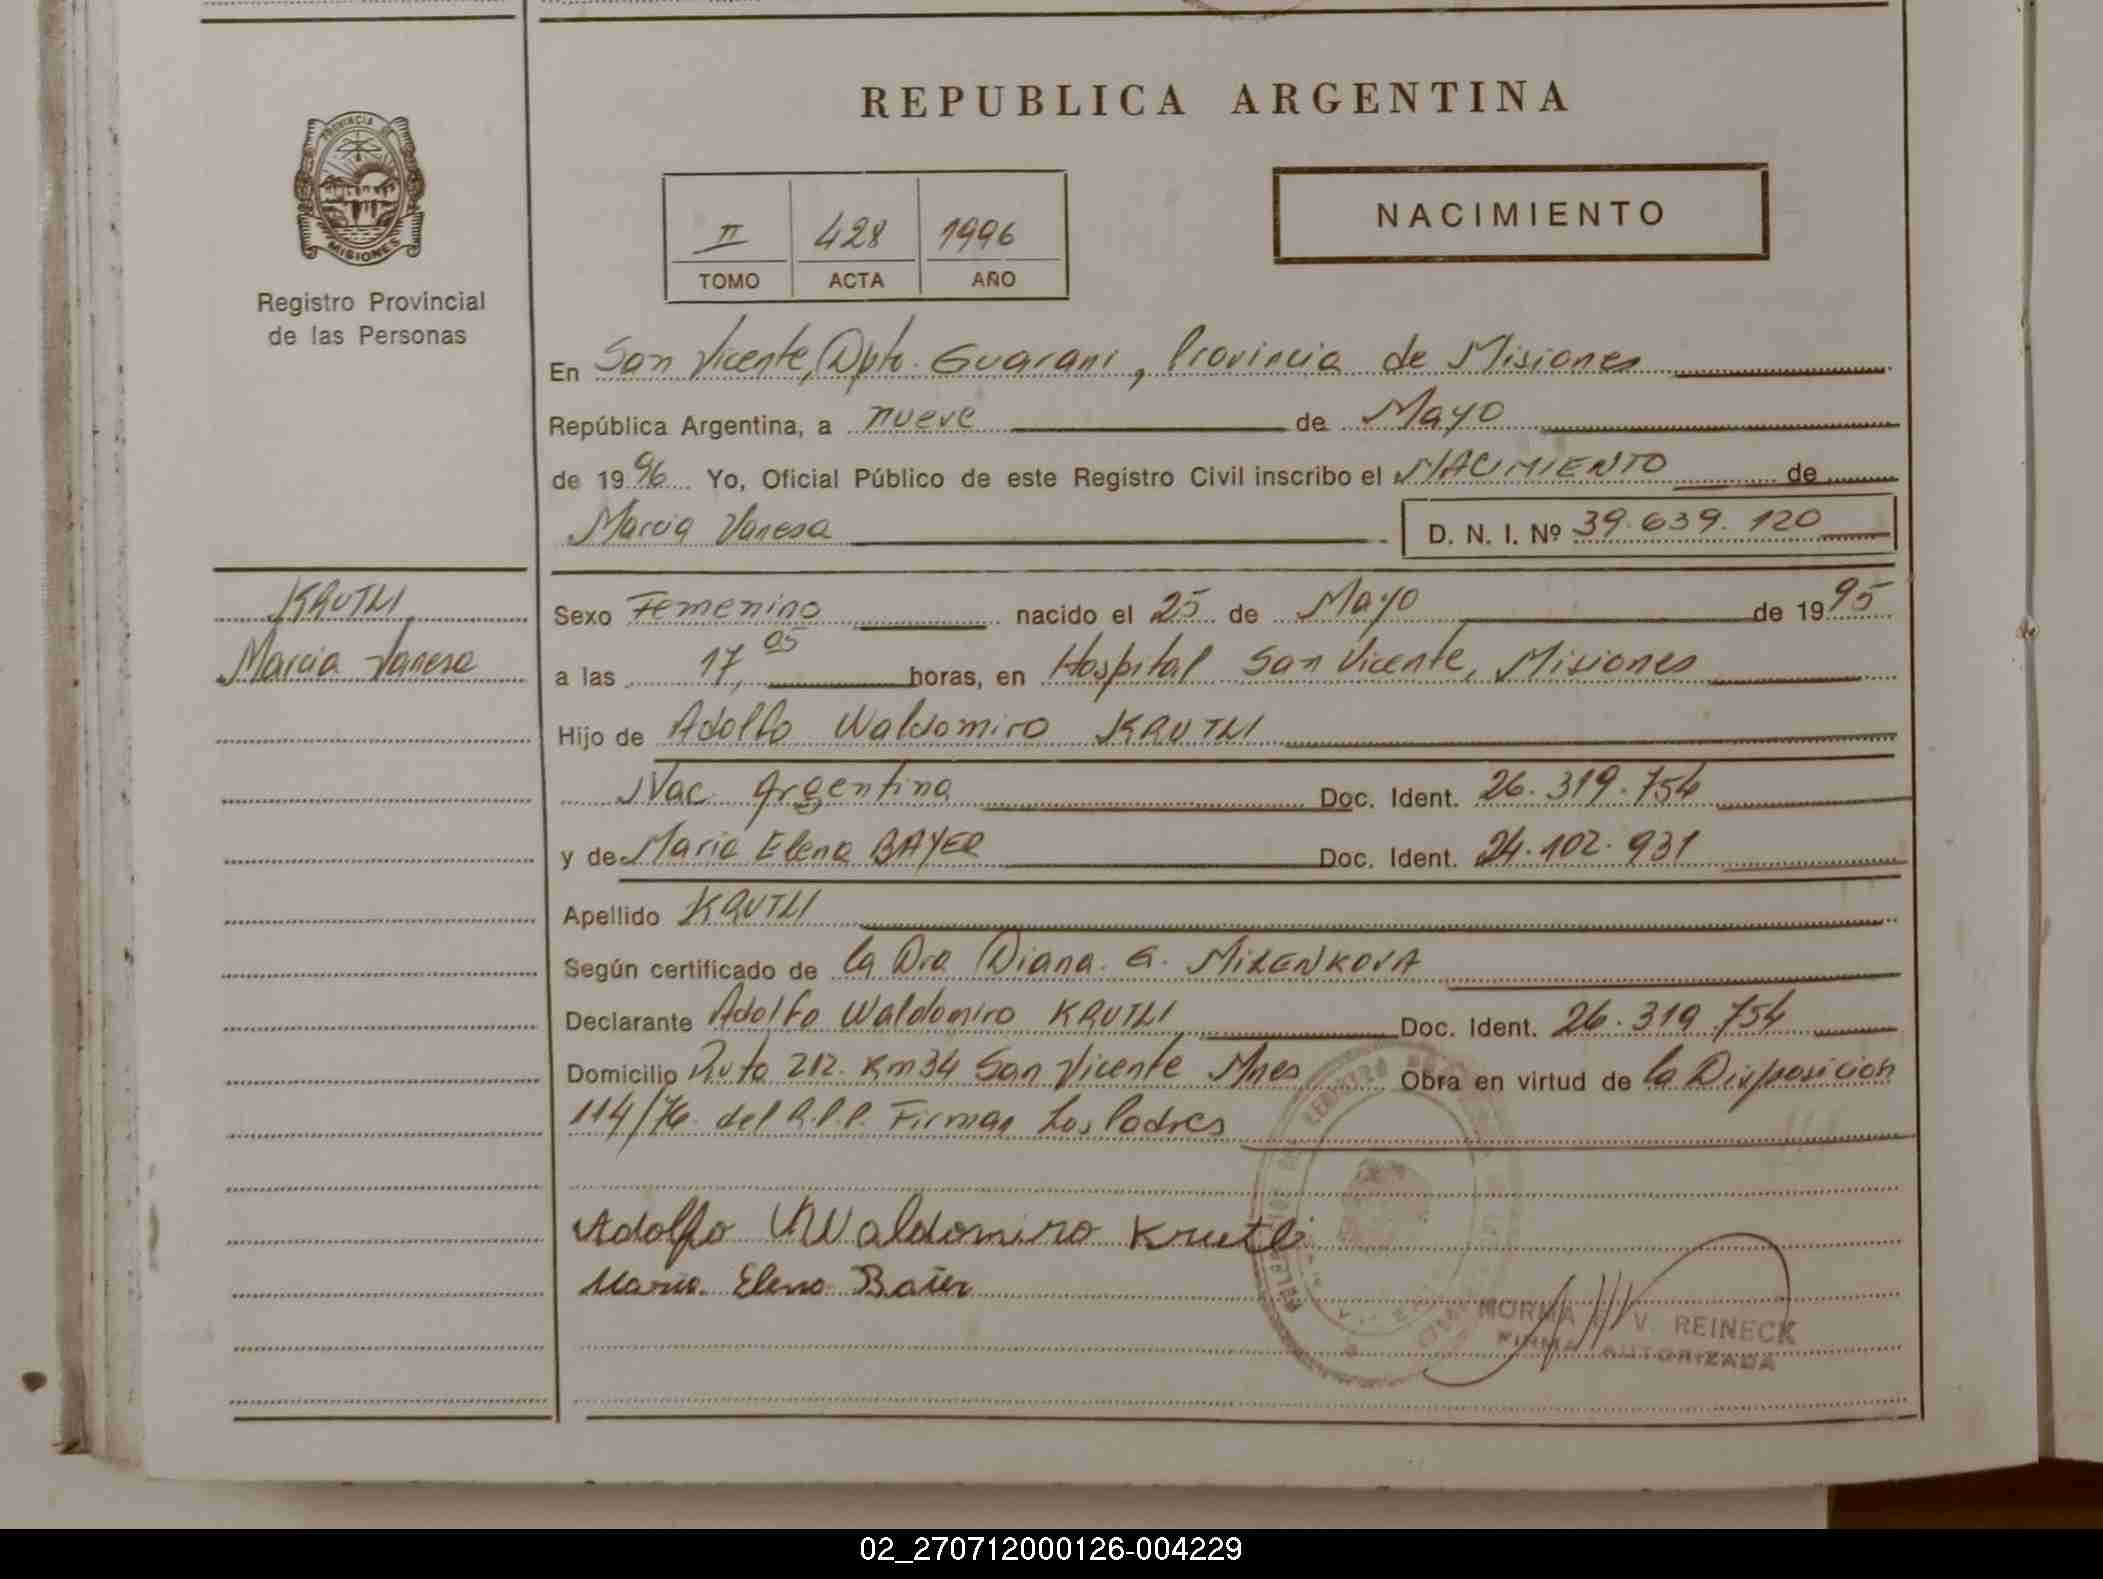 REPUBLICA ARGENTINA
PROVINCIA DE
MISIONES
Registro Provincial
de las Personas
II 428 1996
TOMO ACTA AÑO
NACIMIENTO
En San Vicente, Dpto. Guarani, Provincia de Misiones
República Argentina, a nueve de Mayo
de 1996 Yo, Oficial Público de este Registro Civil inscribo el NACIMIENTO de
Marcia Vanesa D. N. I. Nº 39.639.120
KRUTLI
Marcia Vanesa
Sexo Femenino nacido el 25 de Mayo de 1995
a las 17,05 horas, en Hospital San Vicente, Misiones
Hijo de Adolfo Waldomiro KRUTLI
Nac Argentina Doc. Ident. 26.319.754
y de Maria Elena BAYER Doc. Ident. 24.102.931
Apellido KRUTLI
Según certificado de la Dra Diana G. MIZENKOVA
Declarante Adolfo Waldomiro KRUTLI Doc. Ident. 26.319.754
Domicilio Ruta 212. Km 34 San Vicente Mnes Obra en virtud de la Disposicion
114/76. del R.P.P. Firman Los Padres
Adolfo Waldomiro Krutli
Maria Elena Baier
NORMA V. REINECK
FIRMA AUTORIZADA
02_270712000126-004229